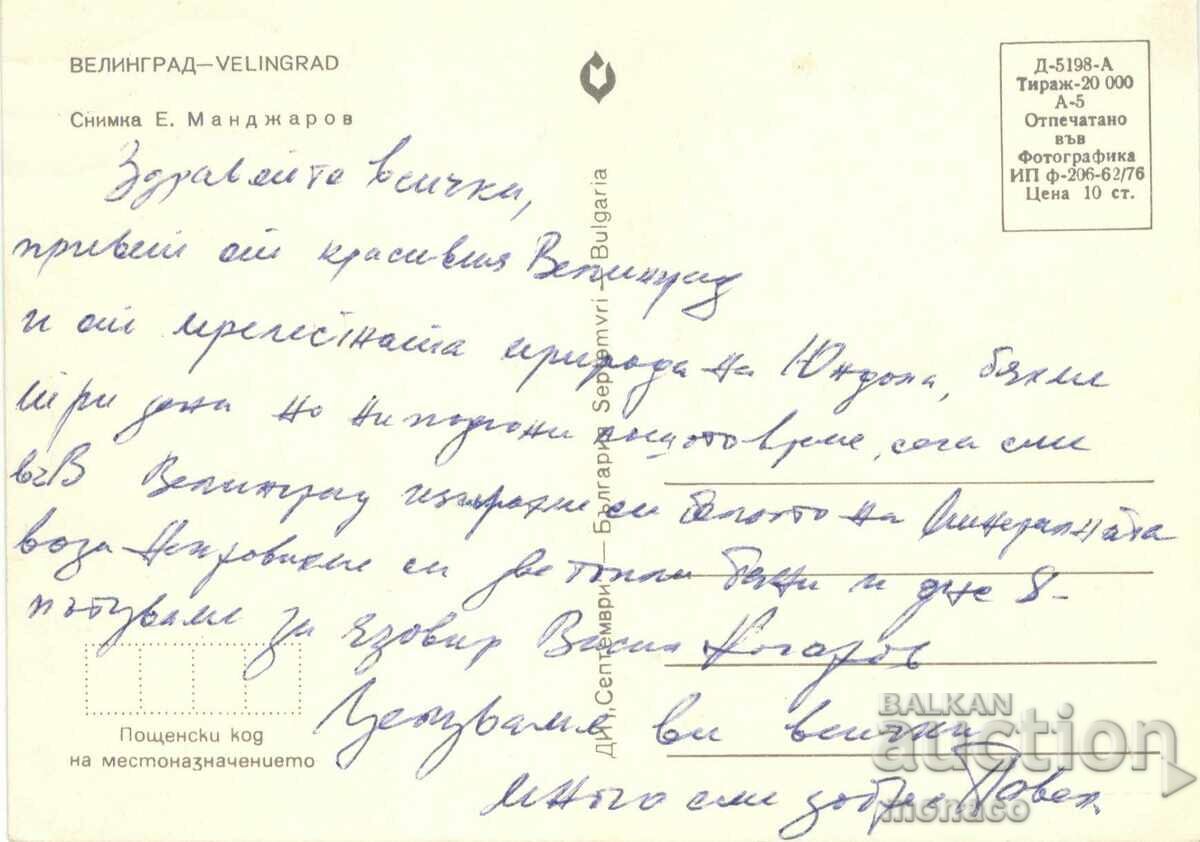 ВЕЛИНГРАД—VELINGRAD
Снимка Е. Манджаров
Д-5198-А
Тираж-20 000
А-5
Отпечатано
във
Фотографика
ИП ф-206-62/76
Цена 10 ст.
ДИП „Септември“ — България Septemvri — Bulgaria
Здравейте всички,
привет от красивия Велинград
и от прелестната природа на Юндола, бяхме
три дена но ни подгони лошото време, сега сме
във Велинград си на Минералната
вода си две топли бани и днес
пътуваме за Язовир Васил Коларов
Целуваме ви всички
много сме добре Павел
Пощенски код
на местоназначението
BALKAN
auction
monaco